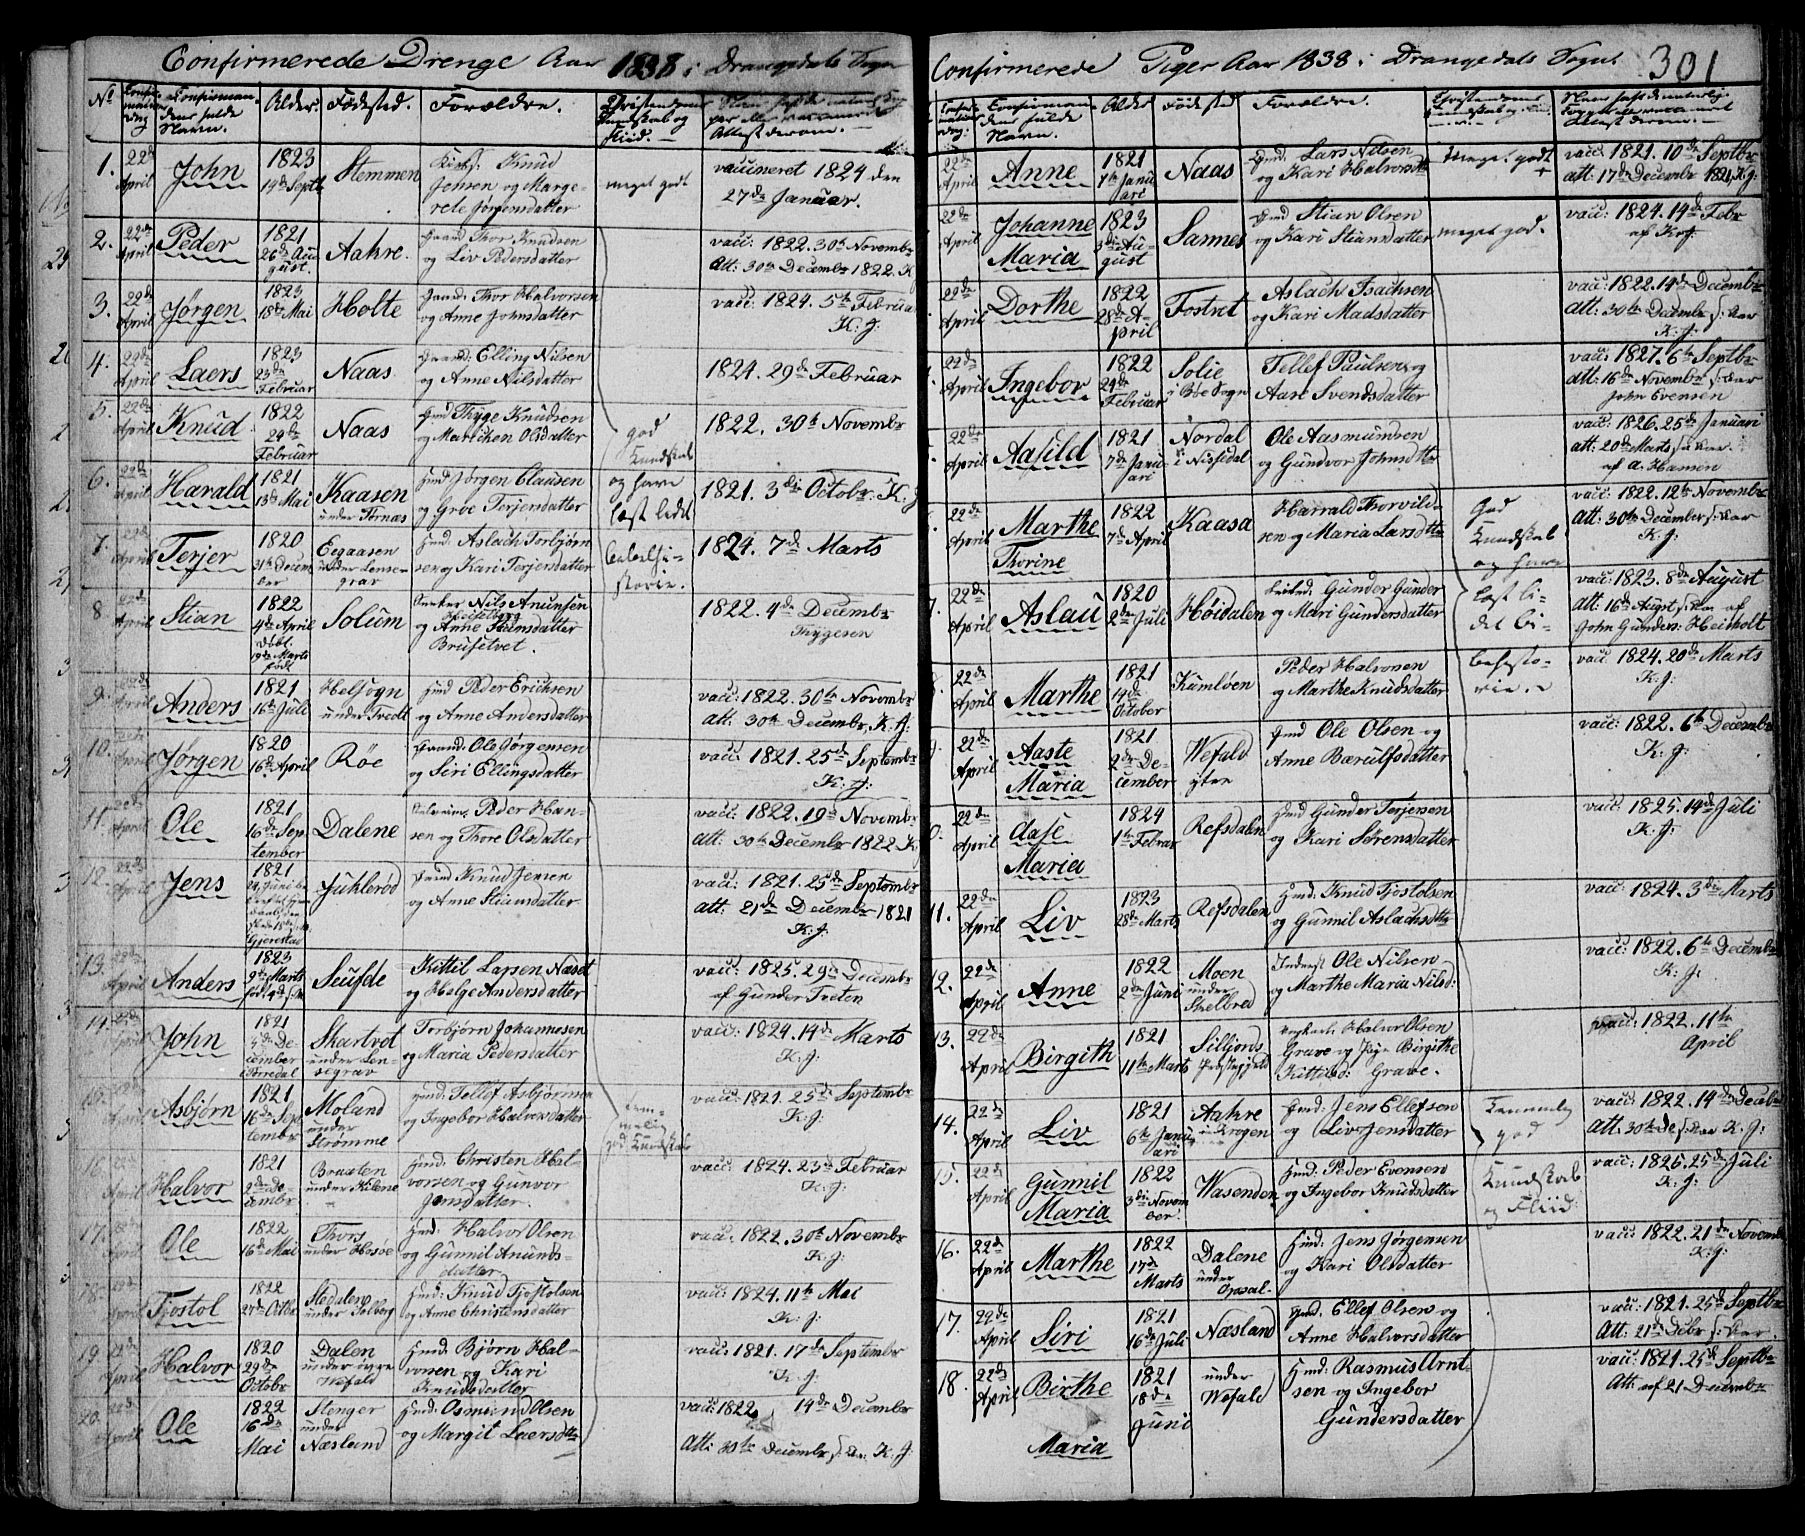 Confirmerede Drenge Aar 1838 i Drangedals Sogn
No | Confirmations Dag | Confirmandens fulde Navn. | Alder. | Födested. | Forældre. | Christendoms Kundskab og Fliid.
1. 22de April John 1823 19de Septb Stemmen Knud Johsen og Margrete Jørgensdatter meget godt vaccineret 1824 den 27de Januar.
2. 22de April Peder 1821 26de August. Aakre. Gaard Thor Knudsen og Liv Pedersdatter vacc: 1822. 30te Novembr Att: 30te Decembr 1822. K
3. 22de April Jørgen 1823 18de Mai Holte Gaard: Thor Halvorsen og Anne Johnsdatter vacc: 1824. 5te Februar K: J:
4. 22de April Laers 1823 23de Februar Naas Gaard: Elling Nilsen og Anne Nilsdatter 1824. 29de Februar
5. 22de April Knud 1822 24de Februar Naas Huusd Thyge Knudsen og Marichen Olsdatter god Kundskab 1822. 30te Novembr
6. 22de April Harald 1821 13de Mai Kaasen under Tørnæs Huusd Jørgen Clausen og Groe Terjersdatter og have læst lidet 1821. 3die Octobr. K: J
7. 22de April Terjer 1820 21de December Eegaasen under Lensegrav Huusd: Aslach Torbjørnsen og Kari Terjersdatter bibelhistorie. 1824. 7de Marts
8 22de April Stian 1822 4de April døbt 19de Marts født Solum Nils Anunsen og Anne Stiansdatter Brusetvet. 1822. 4de Decembr Thygesen
9. 22de April Anders 1821 16de Juli Helsogn under Tvedt Huusd Peder Erichsen og Anne Andersdatter vacc: 1822. 30te Novembr att: 30te Decembr, K. J:
10. 22de April Jørgen 1820 16de April Röe Gaard: Ole Jørgensen og Siri Ellingsdatter vacc: 1821. 25de Septembr K: J:
11. 22de April Ole 1821 16de September Dalene Peder Hansen og Thore Olsdatter vacc: 1822. 19de Novembr att: 30te Decembr 1822 K
12. 22de April Jens 1821 Juhlerød Knud Jensen og Anne Stiansdatter vacc: 1821. 25de Septembr att: 21de Decembr 1821 K: J:
13. 22de April Anders 1823 9de Marts Seufde Kittil Larsen Næset og Helge Andersdatter vacc: 1825. 29de Decembr af Gunder Treten
14. 22de April John 1821 December i Tørredal Skartvet under Lensegrav Torbjørn Johannesen og Maria Pedersdatter vacc: 1824. 14de Marts K: J:
15. 22de April Asbjørn 1821 16de September Moland under Strømme Huusd: Tellef Asbjørnsen og Ingebor Halvorsdatter temmelig god Kundskab vacc: 1821. 25de Septembr K: J:
16. 22de April Halvor 1821 2den December Braaten under Kilene Huusd: Christen Halvorsen og Gunvor Jensdatter. vacc: 1824. 23de Februar K: J:
17. 22de April Ole 1822 16de Mai Thors under Hosöe Huusd: Halvor Olsen og Gunnil Anundsdatter vacc. 1822. 30te Novembr K: J:
18. 22de April Tjostol 1822 27de Octbr Stedalen under Solberg Huusd: Knud Tjostolsen og Anne Christensdatter vacc: 1824. 11te Mai K: J:
19. 22de April Halvor 1820 29de Octobr Dalen under øvre Wefald Huusd: Bjørn Halvorsen og Kari Knudsdatter vacc: 1821. 17de Septembr K: J:
20. 22de April Ole 1822 16de Mai Stenger under Næsland Huusd: Osmund Olsen og Margit Laersdtr vacc: 1822 14de Decembr Att: 30te Decembr K. J:
Confirmerede Piger Aar 1838 i Drangedals Sogn 301
Confirmations Dag: | Confirmandens fulde Navn. | Alder | Födested | Forældre.
22de April Anne 1821 7de Januari Naas Huusd: Lars Nilsen og Kari Halvorsdtr meget godt + vacc: 1821. 10de Septbr att: 17de Decembr 1821, K. J:
22de April Johanne Maria 1823 3die August Sannes Huusd Stian Olsen og Kari Stiansdatter meget god. vacc: 1824. 14de Febr af K. J:
22de April Dorthe 1822 28de April Fostvet Aslach Isachsen og Kari Madsdatter vacc: 1822. 14de Decembr att: 30te Decembr K: J:
22de April Ingebor 1822 24de Februar Solie i Böe Sogn Tellef Paulsen og Aase Svendsdatter vacc: 1827. 6te Septbr att: 16de Novembr John Evensen
22de April Aasild 1821 7de Januari Nordal i Nissedal Ole Aasmundsen og Gundvor Johnsdtr vacc: 1826. 25de Januari att: 20de Marts af A. Hansen
22de April Marthe Thorine 1822 7de April Kaasa Harrald Thorvildsen og Maria Larsdtr God Kundskab vacc: 1822. 12te Novembr att: 30te Decembr K: J:
7. 22de April Aslau 1820 2den Juli Höidalen Gunder Gundersen og Mari Gundersdatter og have læst lidet bibelhistorie. vacc: 1823. 8de August att: 16de Augst af John Gunders: Heiholt
8. 22de April Marthe 1821 14de October Kumlven Peder Halvorsen og Marthe Knudsdatter vacc: 1824. 20de Marts K: J:
9. 22de April Aaste Maria 1821 2den December Wefald ytre Huusd Ole Olsen og Anne Bærulfsdatter vacc: 1822. 6te Decembr K: J:
10. 22de April Aase Maria 1824 1te Februar Refsdalen Huusd Gunder Terjersen og Kari Sørensdatter vacc: 1825. 14de Juli K: J:
11. 22de April Liv 1823 28de Marts Refsdalen Huusd: Knud Tjostolsen og Gunnil Aslachsdtr vacc: 1824. 3die Marts
12. 22de April Anne 1822 2den Juni Moen under Skelbred Inderst Ole Nilsen og Marthe Maria Nilsd: vacc: 1822. 6te Decembr K: J:
13. 22de April Birgith 1821 11te Marts Silljords Præstegjeld Halvor Olsen Grave og Pige Birgithe Kittilsd: Grave. vacc: 1822. 11te April
14. 22de April Liv 1821 6te Januari Aahre Krogen Huusd: Jens Ellefsen og Liv Jensdatter temmelig god vacc: 1822. 14de Decbr att: 30te K. J:
15. 22de April Gunnil Maria 1822 3die November Wasenden Huusd: Peder Evensen og Ingebor Knudsdatter Kundskab og Fliid: vacc: 1826. 25de Juli K: J:
16. 22de April Marthe 1822 17de Marts Dalene under Huusd: Jens Jørgensen og Kari Olsdatter vacc: 1822. 21de Novembr K. J:
17. 22de April Siri 1821 16de Juli Næsland Huusd: Ellef Olsen og Anne Halvorsdatter vacc: 1821. 25de Septbr Att: 21de Decbr
18. 22de April Birthe Maria 1821 18de Juni under Wefald Huusd: Rasmus Arntsen og Ingebor Gundersdatter vacc: 1821. 25de Septbr Att: af 21 Decembr